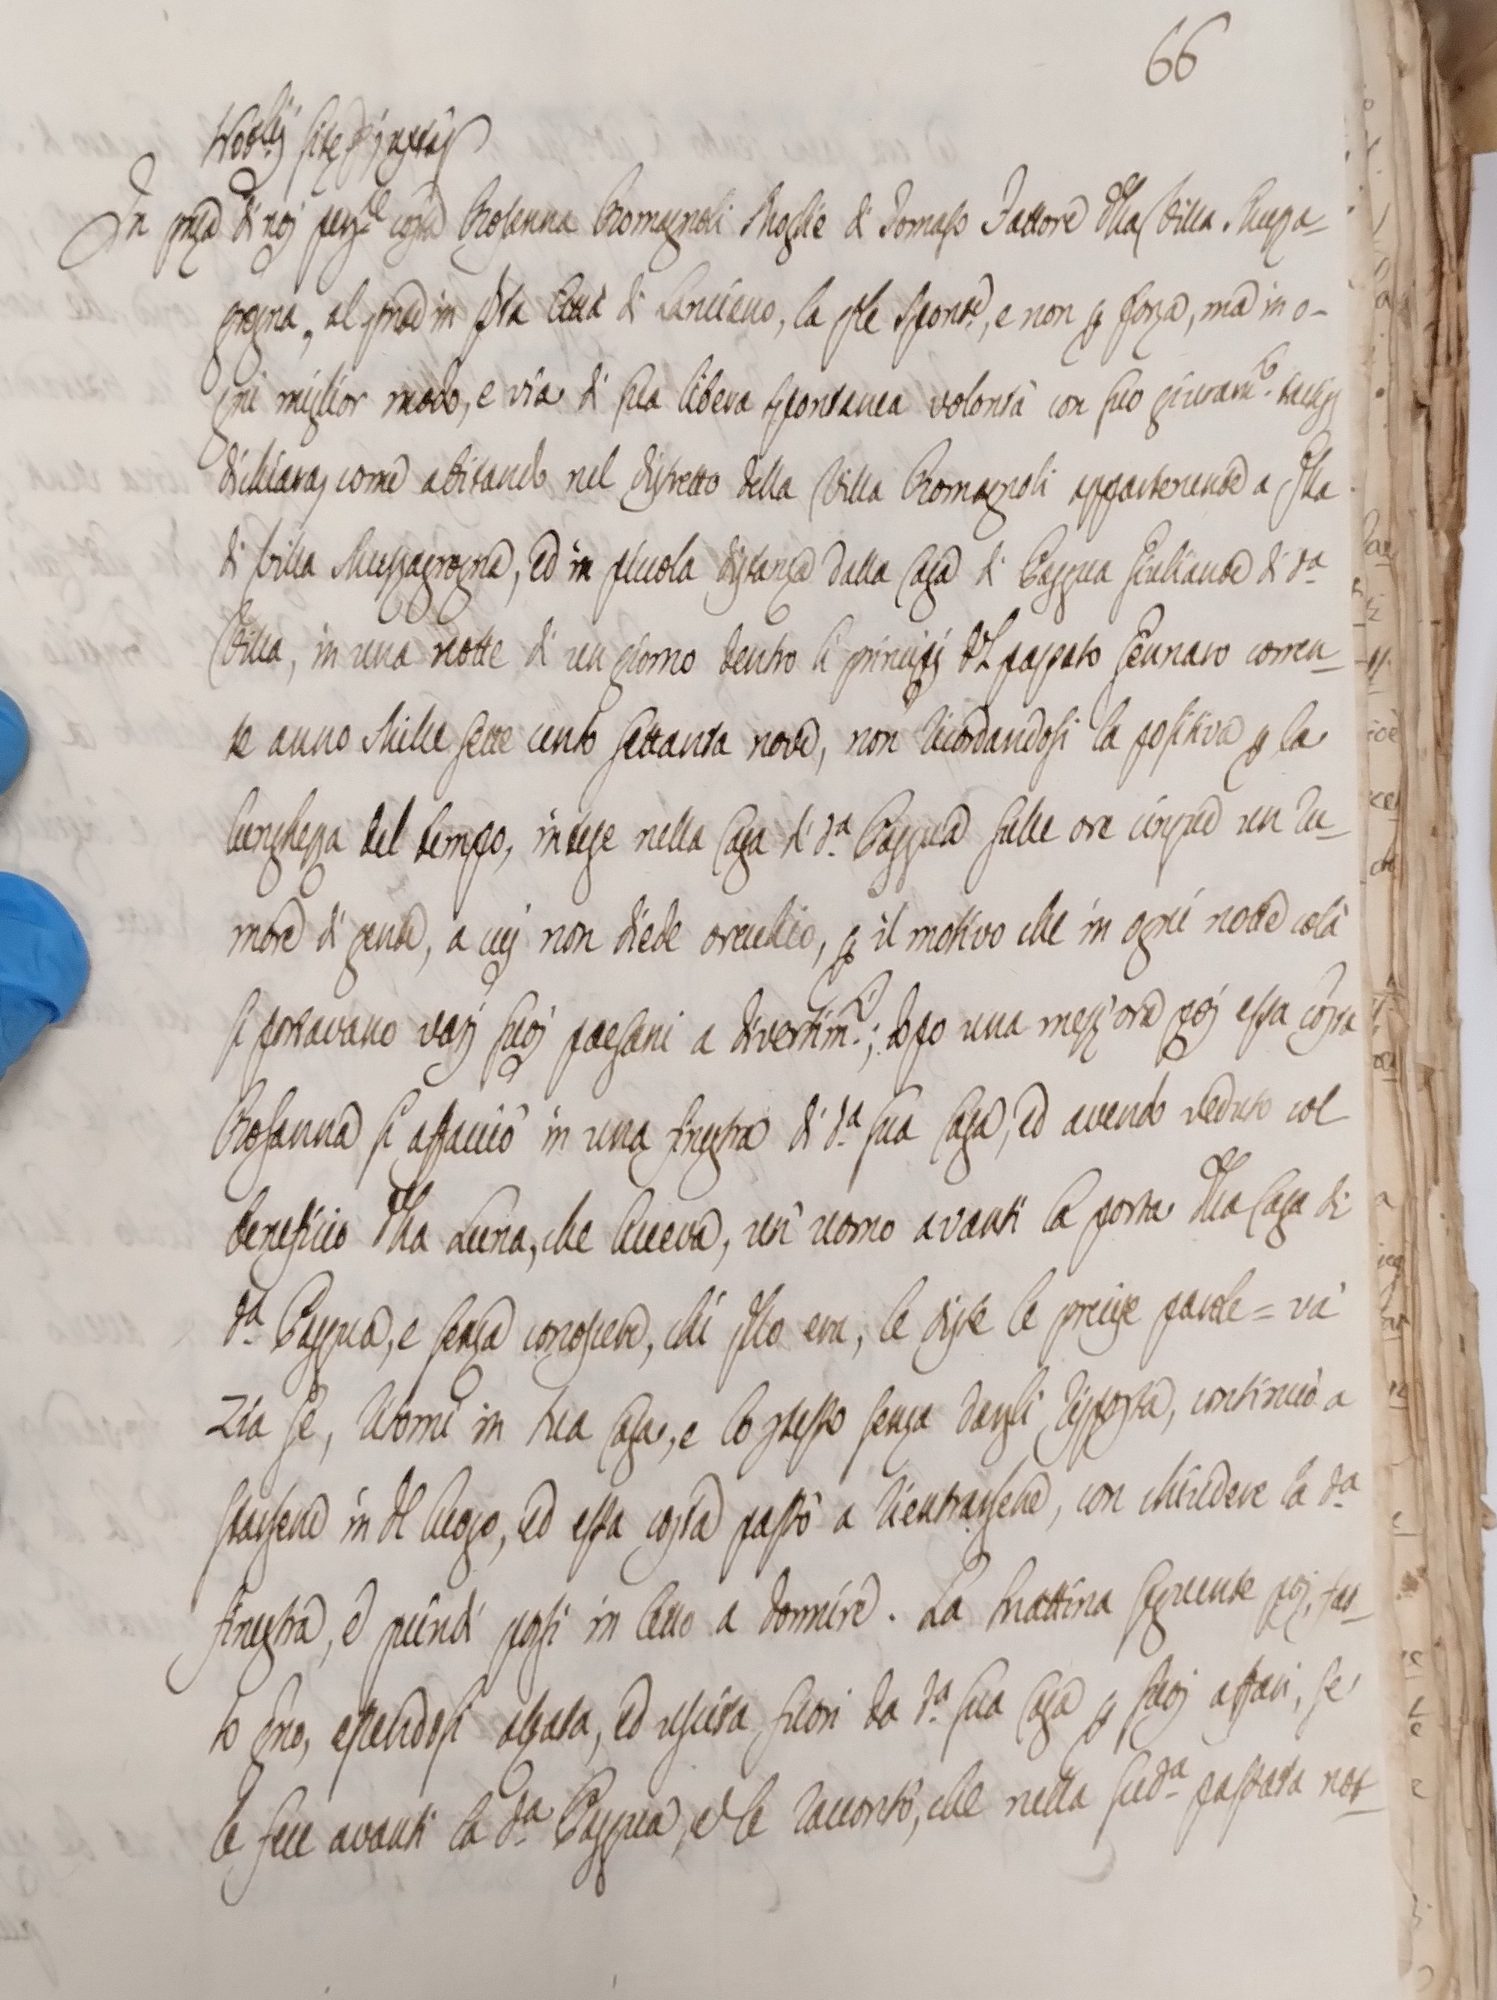 66
In pñza di noi pers.le cos.ta Rosanna Romagnoli Moglie di Tomaso Fattore d'lla Villa Mozza-
grogna, al pñte in q̃sta Città di Lanciano, la q̃le spont.e, e non p forza, ma in o-
gni miglior modo, e via di sua libera spontanea volontà con suo giuram.to tactis
dichiara, come abitando nel distretto della Villa Romagnoli appartenente a q̃lla
di Villa Mozzagrogna, ed in picciola distanza dalla Casa di Pasqua Giuliante di d.a
Villa, in una notte di un giorno dentro li principj d'l passato Gennaro corren-
te anno Mille sette cento settanta nove, non ricordandosi la positiva p la
lunghezza del tempo, intese nella Casa di d.a Pasqua sulle ore cinque un ru-
more di gente, a cui non diede orecchio, p il motivo che in ogni notte colà
si portavano varj suoi paesani a divertim.ti; dopo una mezz'ora poi essa cos.ta
Rosanna si affacciò in una finestra di d.a sua Casa, ed avendo veduto col
beneficio d'lla Luna, che luceva, un'uomo avanti la porta d'lla Casa di
d.a Pasqua, e senza conoscere, chi q̃llo era, le disse le precise parole = và
Zia Sè, ritorni in tua Casa, e lo stesso senza darli risposta, continuò a
starsene in d.o luogo, ed essa cos.ta passò a rientrarsene, con chiudere la d.a
finestra, e quindi posesi in letto a dormire. La mattina seguente poi, fat-
to g̃no, essendosi alzata, ed uscita fuori da d.a sua Casa p suoi affari, se
le fece avanti la d.a Pasqua, e le raccontò, che nella sud.a passata not-